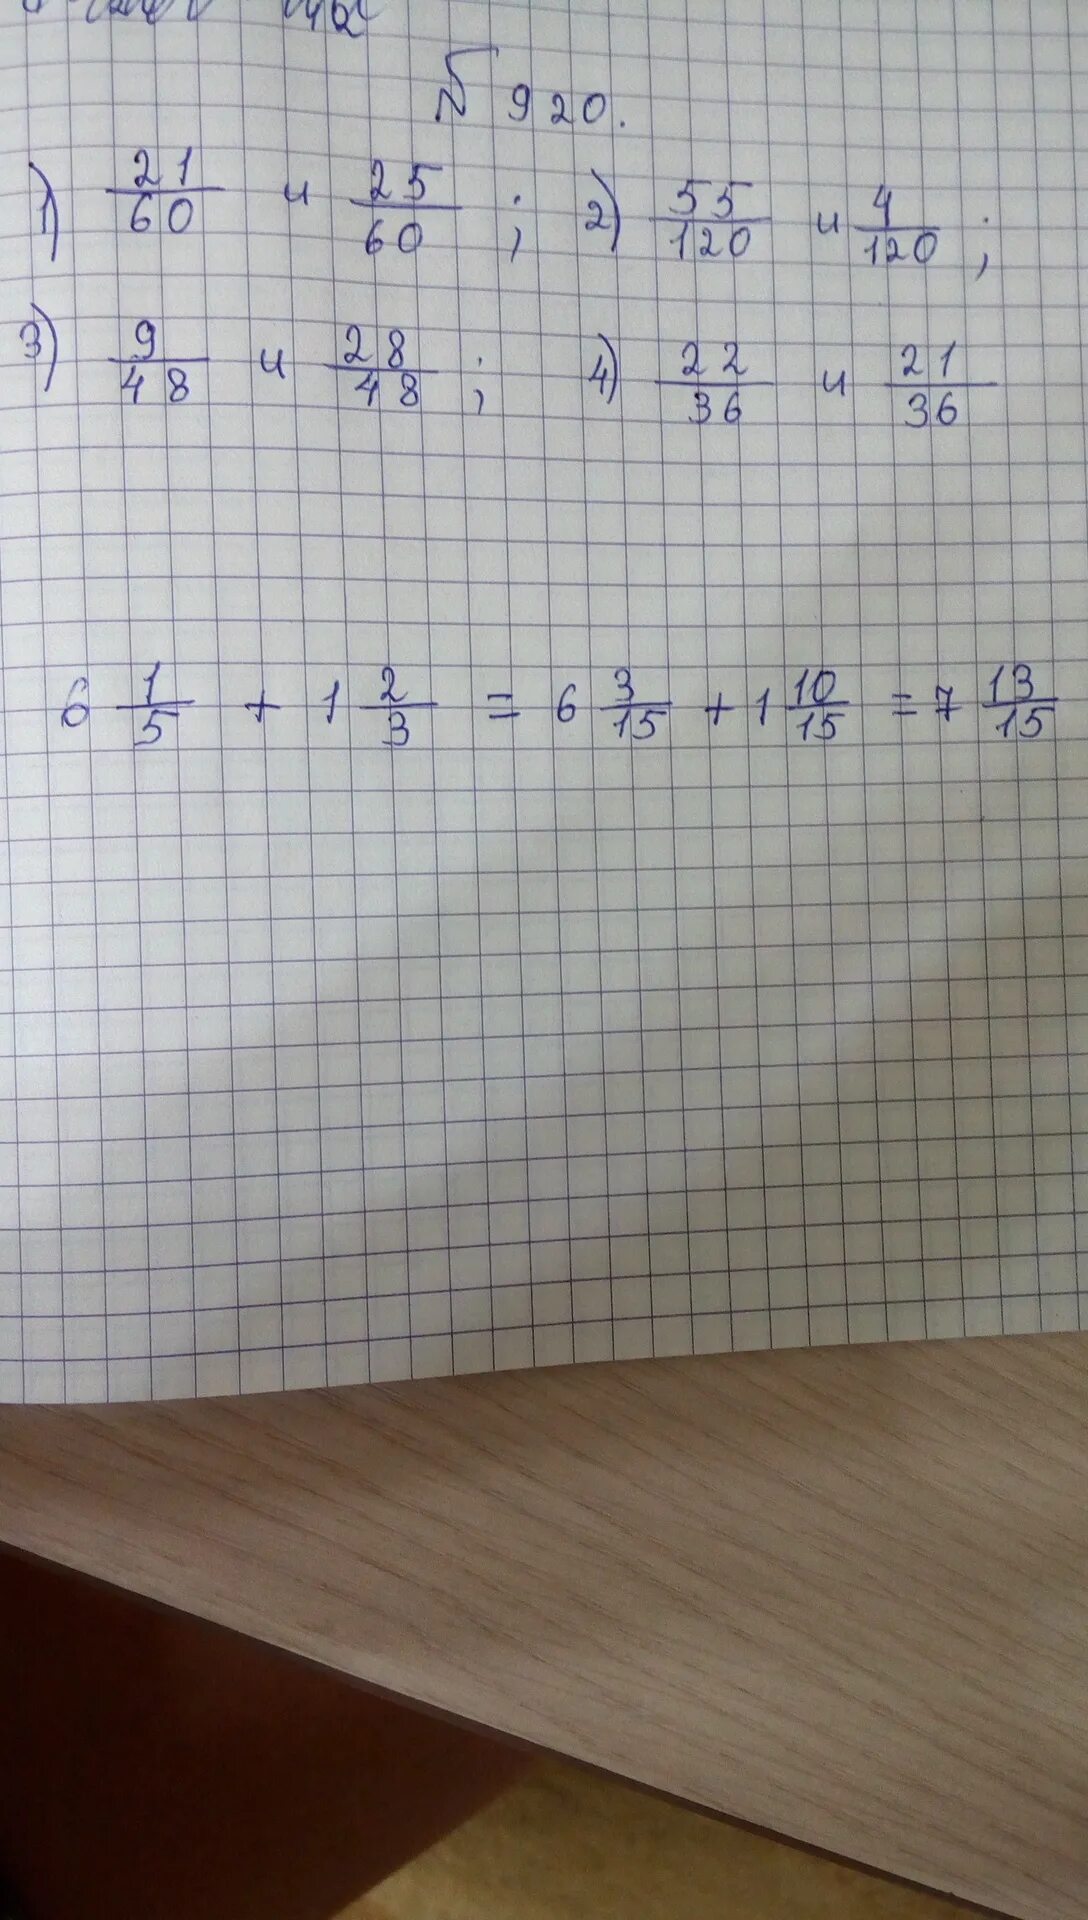 № 920.
1) 21/60 и 25/60 ; 2) 55/120 и 4/120 ;
3) 9/48 и 28/48 ; 4) 22/36 и 21/36
6 1/5 + 1 2/3 = 6 3/15 + 1 10/15 = 7 13/15